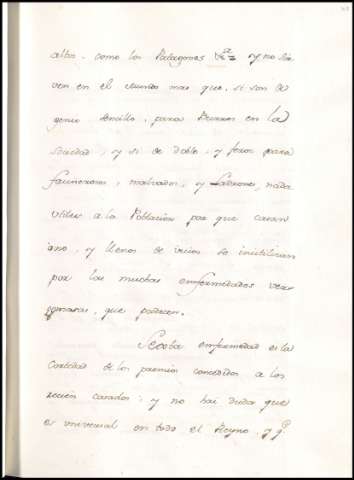 altos, como los Patagones &ª y no sir
ven en el mundo mas que, si son de
genio sencillo, para Burros en la
sociedad, y si de doble, y feroz para
facinerosos, malvados, y Ladrones, nada
utiles a la Poblacion por que casan
y llenos de vicios se inutilizan
por las muchas enfermedades ver
gonzosas, que padecen.
enfermedad es la
Cortedad de los premios concedidos a los
recien casados; y no hai duda que
es universal en todo el Reyno, y qº